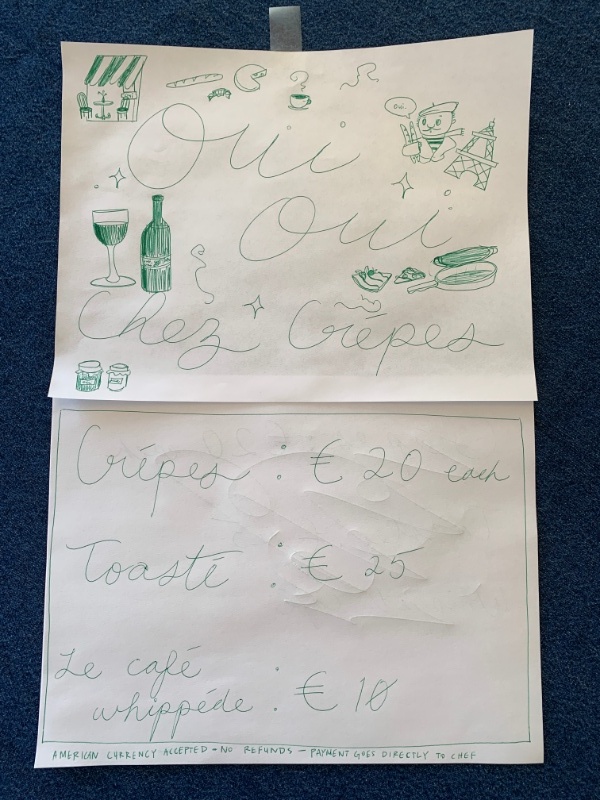 Oui.
Oui
Oui
Chez Crêpes
Crêpes : € 20 each
Toasté : € 25
Le café
whippéde : € 10
AMERICAN CURRENCY ACCEPTED - NO REFUNDS - PAYMENT GOES DIRECTLY TO CHEF